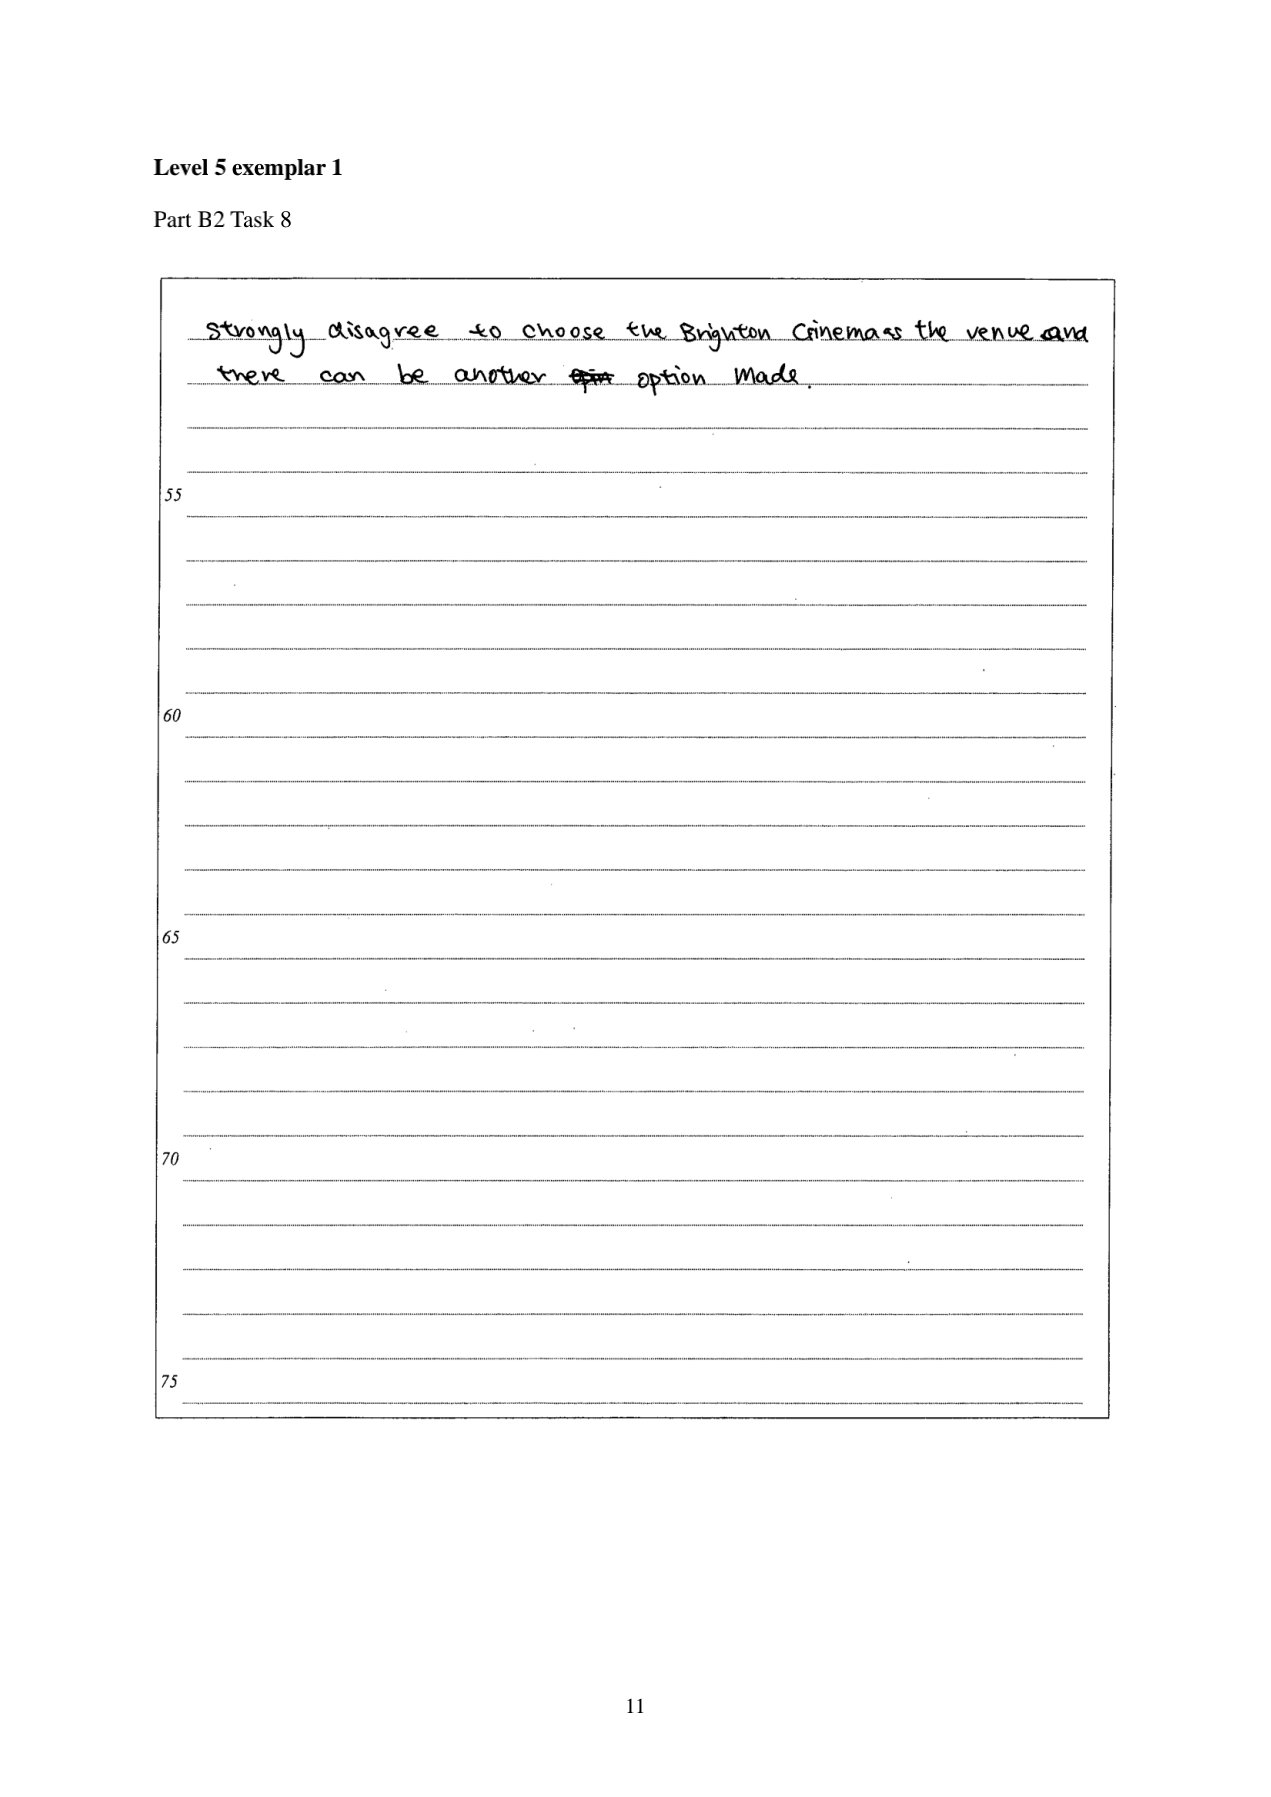 Level 5 exemplar 1
Part B2 Task 8
strongly disagree to choose the Brighton Cinema as the venue and
there can be another option made.
55
60
65
70
75
11